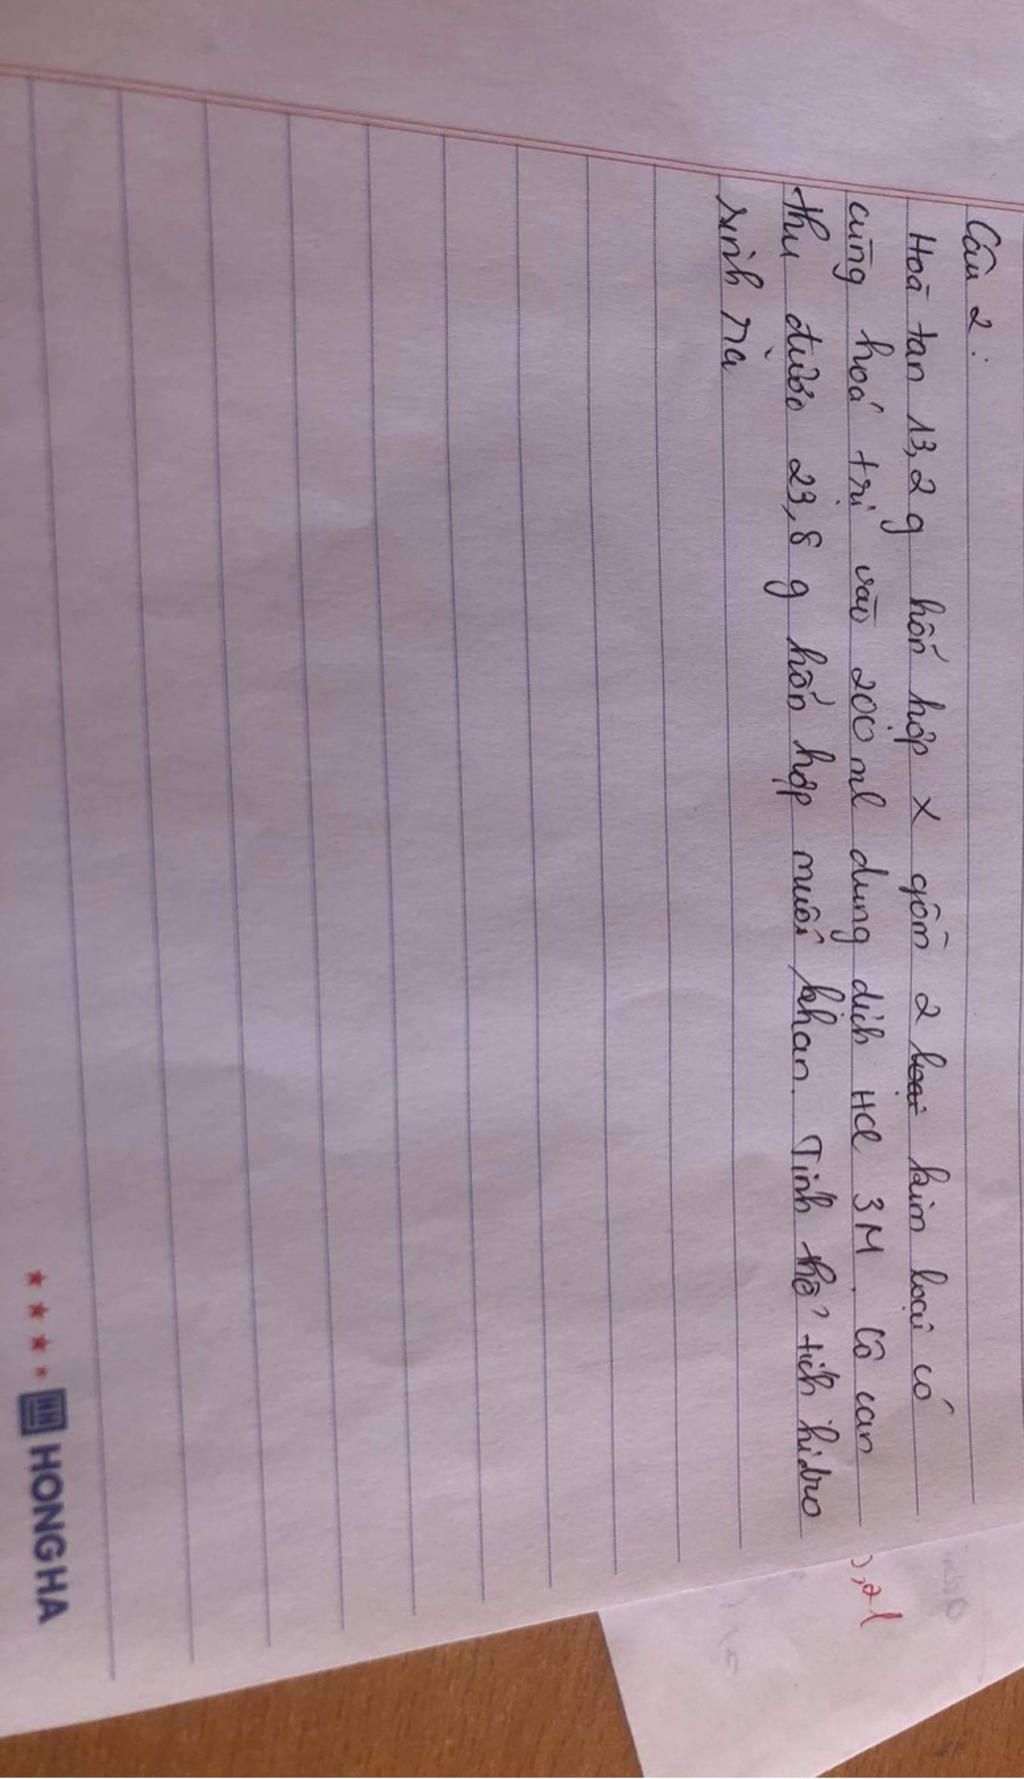 Câu 2:
Hoà tan 13,2 g hỗn hợp X gồm 2 kim loại có
cùng hoá trị vào 200 ml dung dịch HCl 3M. Cô cạn
thu được 23,8 g hỗn hợp muối khan. Tính thể tích hidro
sinh ra
HONG HA